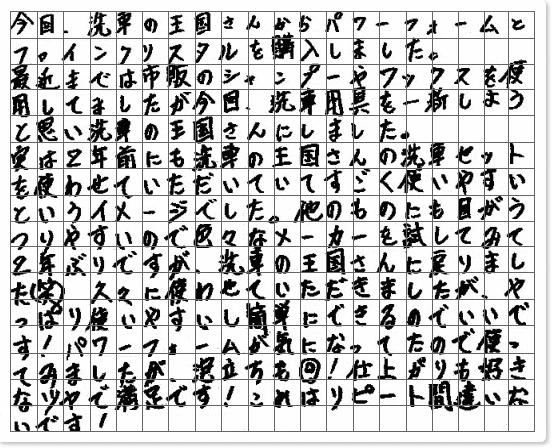 今回、洗車の王国さんからパワーフォームと
ファインクリスタルを購入しました。
最近までは市販のシャンプーやワックスを使
用してましたが今回、洗車用具を一新しよう
と思い洗車の王国さんにしました。
実は2年前にも洗車の王国さんの洗車セット
を使わせていただいていてすごく使いやすい
というイメージでした。他のものにも目がう
つりやすいので色々なメーカーを試してみて
2年ぶりですが、洗車の王国さんに戻りまし
た(笑) 久々に使わせていただきましたが、や
っぱり使いやすいし簡単にできるのでいいで
す!パワーフォームが気になってたので使っ
てみましたが、泡立ちも◎!仕上がりも好き
なツヤで満足です!これはリピート間違いな
いですや!